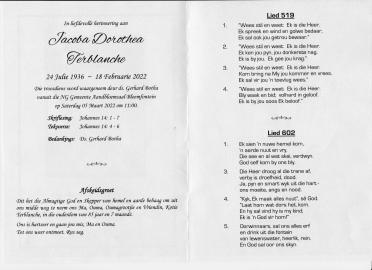 In liefdevolle herinnering aan
Jacoba Dorothea
Terblanche
24 Julie 1936 ~ 18 Februarie 2022
Die troosdiens word waargeneem deur ds. Gerhard Botha
vanuit die NG Gemeente Aandbloemsaal Bloemfontein
op Saterdag 05 Maart 2022 om 11:00.
Skriflesing: Johannes 14: 1 - 7
Teksvers: Johannes 14: 4 - 6
Bedankings: Ds. Gerhard Botha
Afskeidsgroet
Dit het die Almagtige God en Skepper van hemel en aarde behaag om uit
ons midde weg te neem ons Ma, Ouma, Oumagrootjie en Vriendin, Kotie
Terblanche, in die ouderdom van 85 jaar en 7 maande.
Ons is hartseer en gaan jou mis, Ma en Ouma.
Tot ons weer ontmoet. Rus sag.
Lied 519
1. "Wees stil en weet: Ek is die Heer.
Ek spreek en wind en golwe bedaar.
Ek sal ook jou getrou bewaar."
2. "Wees stil en weet: Ek is die Heer.
Ek ken jou pyn, jou donkerste nag.
Ek is by jou. Ek gee jou krag."
3. "Wees stil en weet: Ek is die Heer.
Kom bring na My jou kommer en vrees.
Ek sal vir jou 'n toevlug wees."
4. "Wees stil en weet: Ek is die Heer.
Bly waak en bid; volhard in geloof.
Ek is by jou soos Ek beloof."
Lied 602
1. Ek sien 'n nuwe hemel kom,
'n aarde nuut en vry.
Die see en al wat skei, verdwyn.
God self kom by ons bly.
3. Die Heer droog al die trane af,
verby is droefheid, dood.
Ja, pyn en smart wyk uit die hart -
ons moeite, angs en nood.
4. "Kyk, Ek maak alles nuut", sê God.
"Laat hom wat dors het, kom.
En hy sal kind hy is my kind;
Ek is 'n God vir hom!"
5. Oorwinnaars, sal ons alles erf
en drink uit die fontein
van lewenswater, heerlik, rein.
En God sal oor ons skyn.